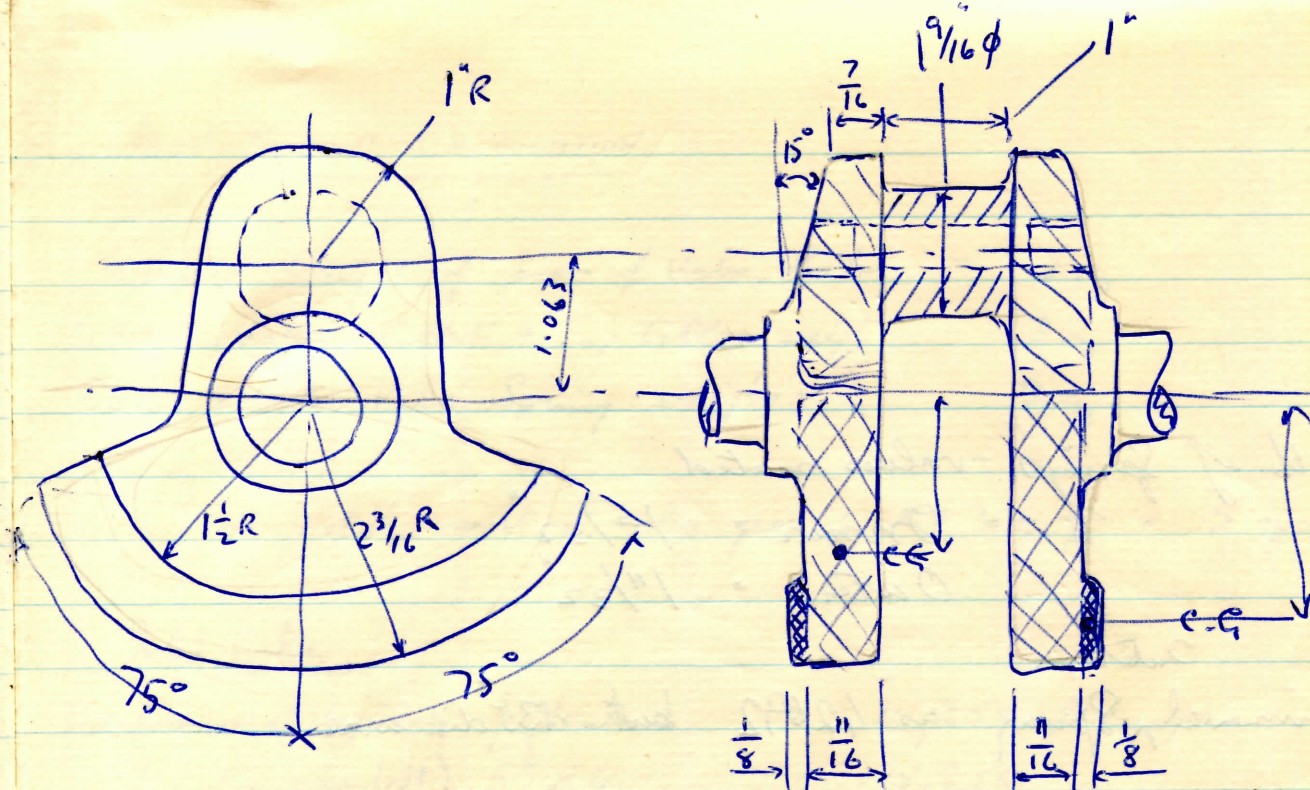 1"R
1.063
1½R
2 3/16 R
75°
75°
1 9/16 ϕ
1"
7/16
15°
CG
C.G
1/8
11/16
11/16
1/8